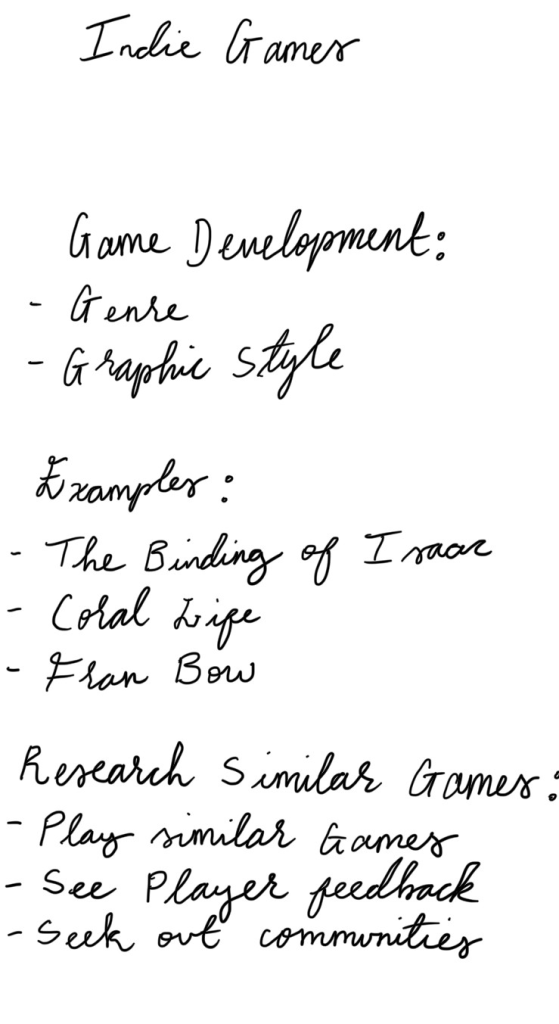 Indie Games
Game Development:
- Genre
- Graphic style
Examples:
- The Binding of Isaac
- Coral Life
- Fran Bow
Research Similar Games:
- Play similar Games
- See Player feedback
- Seek out communities